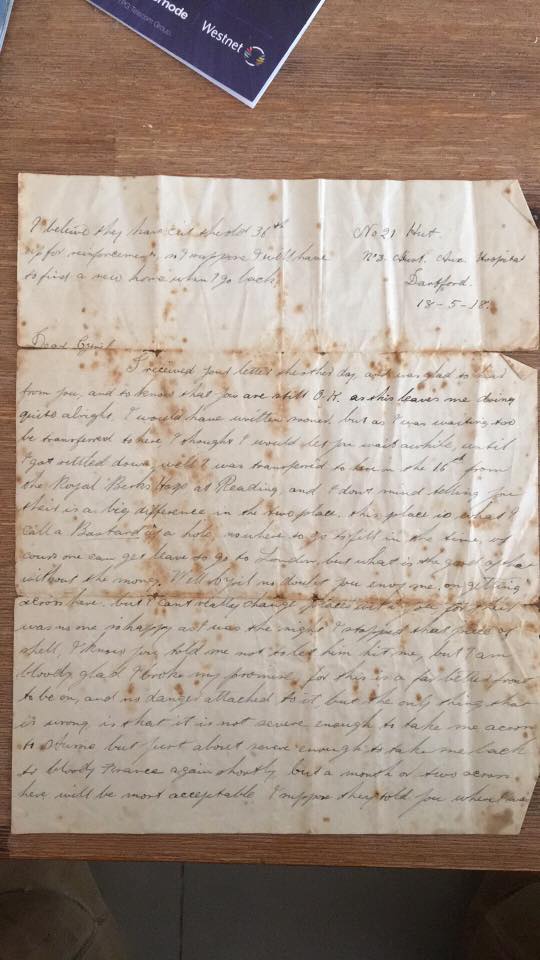 rnode
TPG Telecom Group
Westnet
I believe they have cut the old 36th
up for reinforcements, so I suppose I will have
to find a new home when I go back.
No 21 Hut
No 3. Aust. Aux Hospital
Dartford.
18-5-18.
Dear Cyril
I received your letter the other day and was glad to hear
from you, and to know that you are still O.K. as this leaves me doing
quite alright. I would have written sooner, but as I was waiting too
be transferred to here I thought I would let you wait awhile, until
I got settled down, well I was transferred to here on the 16th from
the Royal Berks Hosp at Reading, and I don't mind telling you
their is a big difference in the two place. this place is what I
call a Bastard of a hole, nowhere to go to fill in the time, of
course one can get leave to go to London, but what is the good of that
without the money. Well no doubt you envy me, on getting
across here. but I can't really change places with you for their
was no one so happy as I was the night I stopped that piece of
shell, I know you told me not to let him hit me, but I am
bloody glad I broke my promise, for this is a far better front
to be on, and no danger attached to it but the only thing that
is wrong is that it is not severe enough to take me across
to Aussie but just about severe enough to take me back
to bloody France again shortly but a month or two across
here will be most acceptable I suppose they told you where I was